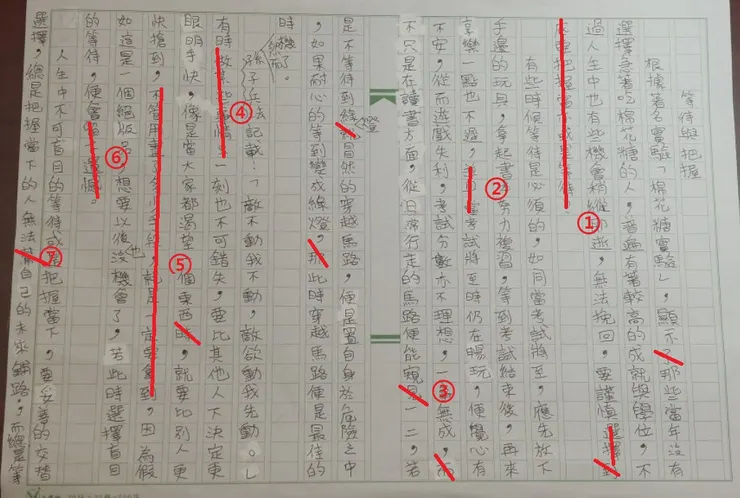 等待與把握
根據著名實驗「棉花糖實驗」,顯示了那些當年沒有
選擇急著吃棉花糖的人,普遍有著較高的成就與學位,不
過人生中也有些機會稍縱即逝,無法挽回,要謹慎選擇到
底要把握當下或是等待
有些時候等待是必須的,如同當考試將至,應先放下
手邊的玩具,拿起書努力複習,等到考試結束後,再來
享樂一點也不遲,考試將至時仍在暢玩,便慢心有
不安,從而遊戲失利,考試分數亦不理想,一無成,而
不只是在讀書方面,從日常行走的馬路便能窺見一二,若
是不等待到綠燈冒然的穿越馬路,便是置自身於危險之中
,如果耐心的等到變成綠燈,那此時穿越馬路便是最佳的
時機了。
然而孫子兵法記載:「敵不動我不動,敵欲動我先動。」
有時一刻也不可錯失,要比其他人下決定更
眼明手快,像是當大家都渴望一個東西時,就要比別人更
快搶到,不管用盡就是一定要拿到,因為假
如這是一個絕版品,想要以後也沒機會了,若此時選擇盲目
的等待,便會遺憾。
人生中不可盲目的等待或把握當下,要妥善的交替
選擇,總是把握當下的人無法替自己的未來鋪路,而總是等